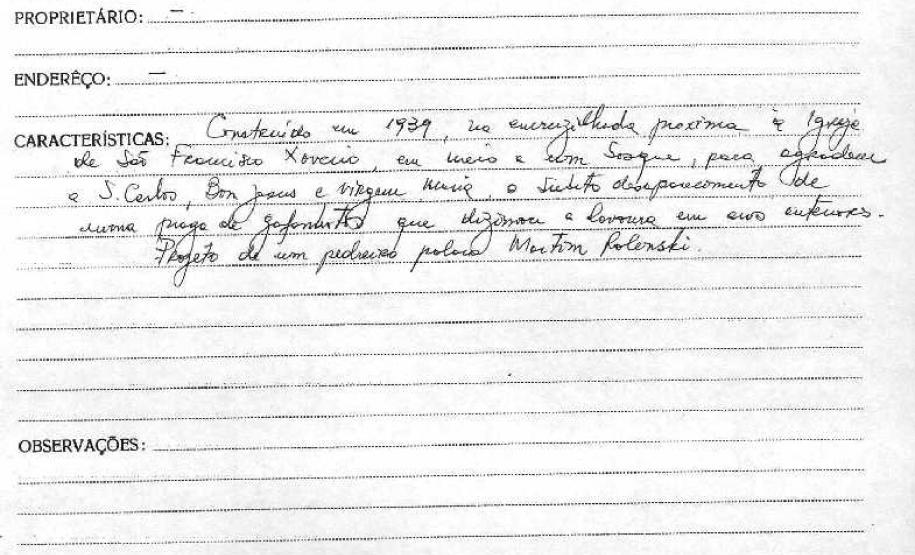 PROPRIETÁRIO: —
ENDERÊÇO: —
CARACTERÍSTICAS: Construído em 1939, na encruzilhada proxima à Igreja
de São Francisco Xaverio, em meio a um bosque, para agradecer
a S. Carlos, Bom Jesus e Virgem Maria, o subito desaparecimento de
numa praga de gafanhotos que dizimou a lavoura em anos anteriores.
Projeto de um pedreiro polaco Martim Polenski.
OBSERVAÇÕES: